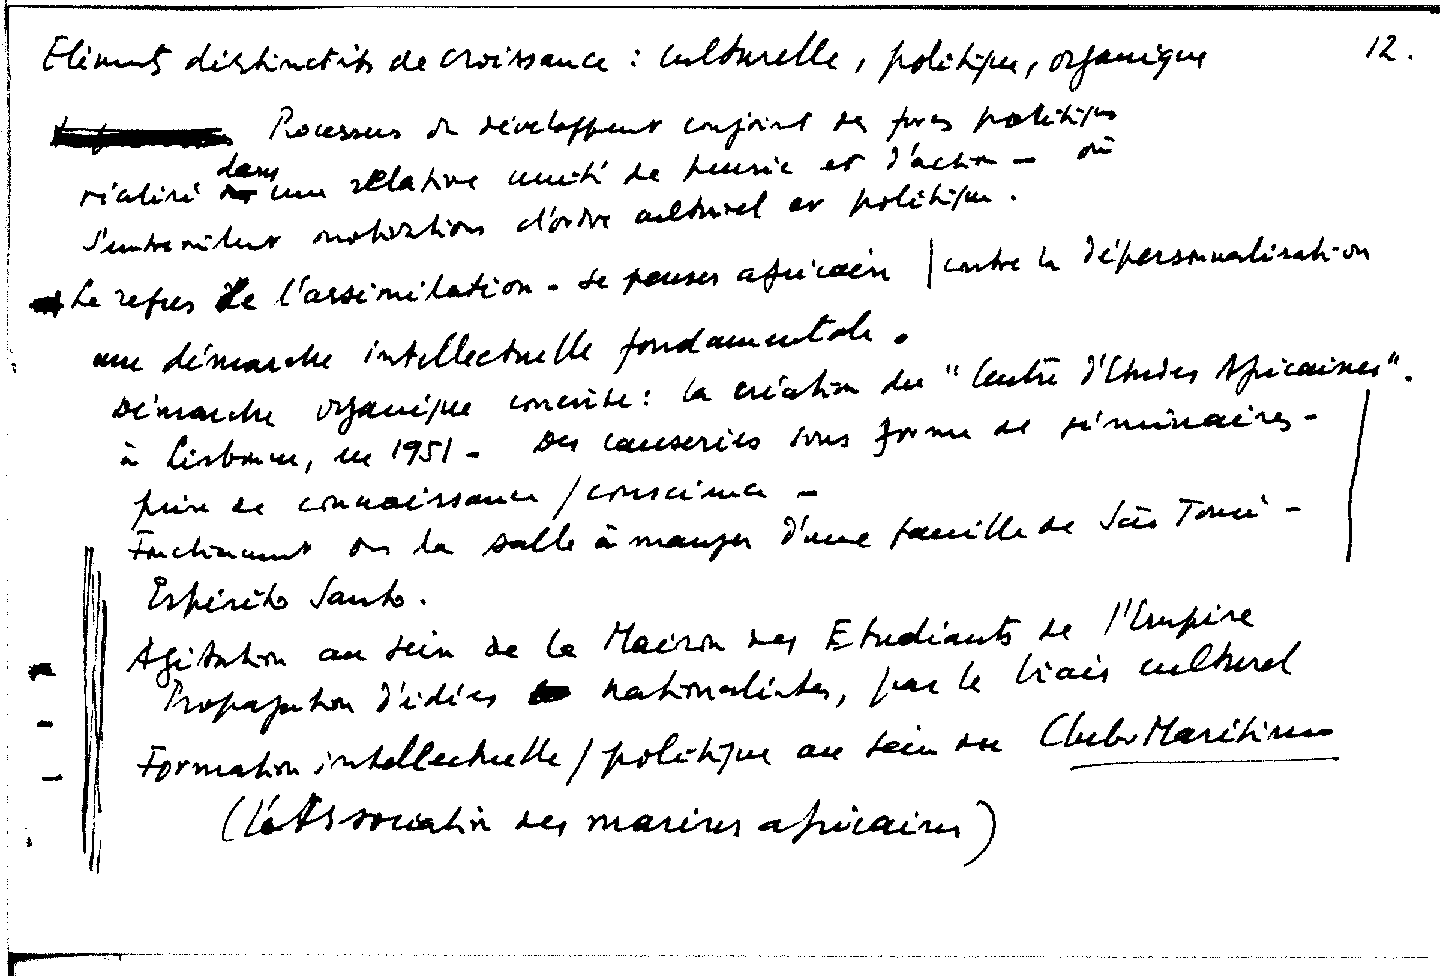 Eléments distinctifs de croissance : culturelle, politique, organique 12.
Processus de développement conjoint des forces politiques
réalisé dans une relative unité de pensée et d'action – où
s'entremêlent motivations d'ordre culturel et politique.
Le refus de l'assimilation - se penser africain / contre la dépersonnalisation
une démarche intellectuelle fondamentale.
Démarche organique concrète : la création du "Centre d'Etudes Africaines".
à Lisbonne, en 1951 - Des causeries sous forme de séminaires -
prise de connaissance / conscience -
Fonctionnant ds la salle à manger d'une famille de São Tomé -
Espírito Santo.
Agitation au sein de la Maison des Etudiants de l'Empire
Propagation d'idées nationalistes, par le biais culturel
Formation intellectuelle / politique au sein du Clube Marítimo
(l'Association des marins africains)